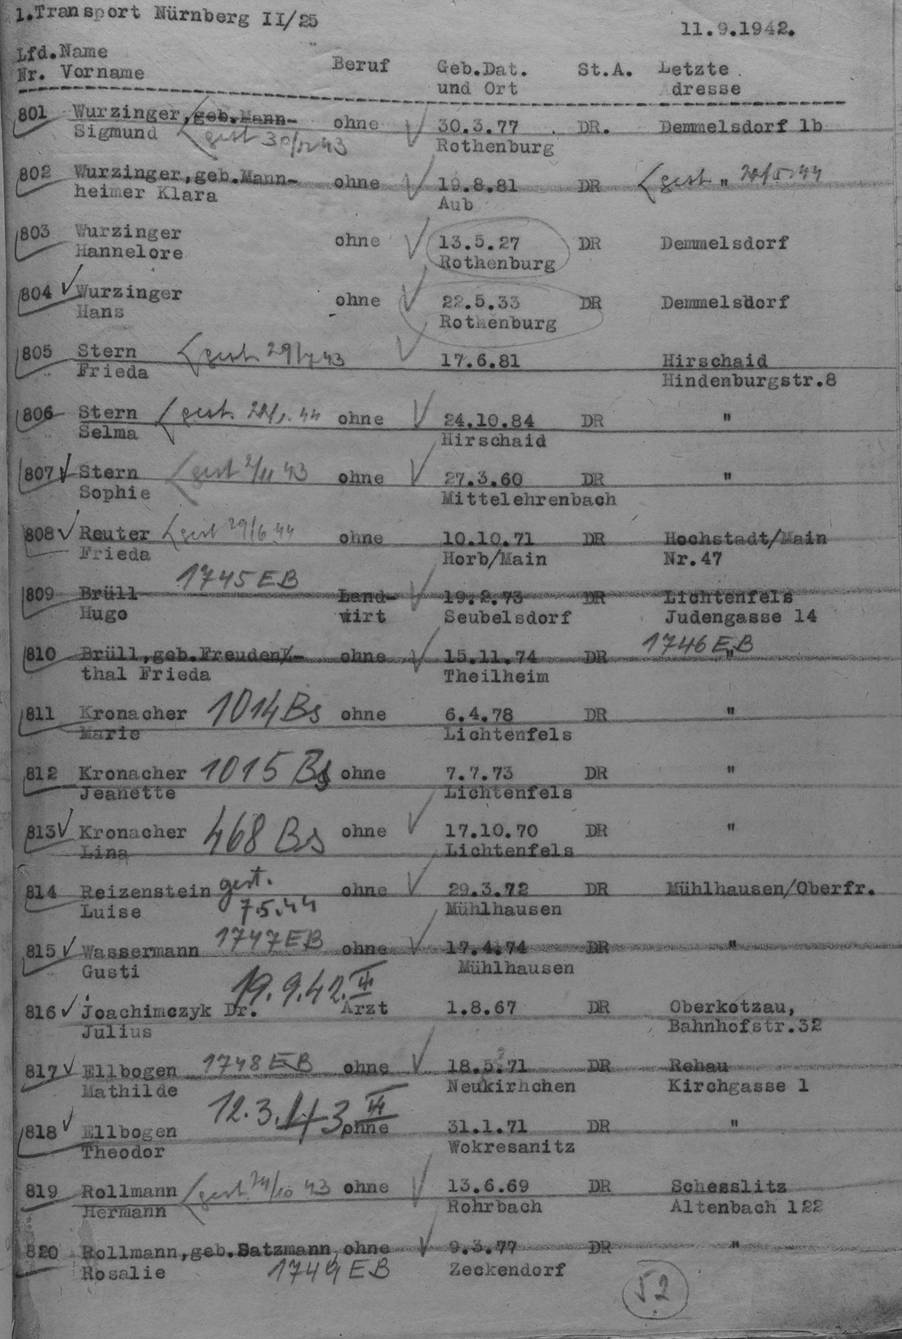 1.Transport Nürnberg II/25 11.9.1942.
Lfd.Name Beruf Geb.Dat. St.A. Letzte
Nr. Vorname und Ort dresse
801 Wurzinger,geb.Mann- ohne 30.3.77 DR. Demmelsdorf 1b
Sigmund gest 30/12 43 Rothenburg
802 Wurzinger,geb.Mann- ohne 19.8.81 DR gest " 44
heimer Klara Aub
803 Wurzinger ohne 13.5.27 DR Demmelsdorf
Hannelore Rothenburg
804 Wurzinger ohne 22.5.33 DR Demmelsdorf
Hans Rothenburg
805 Stern gest 29/ 43 17.6.81 Hirschaid
Frieda Hindenburgstr.8
806 Stern gest. 44 ohne 24.10.84 DR "
Selma Hirschaid
807 Stern gest 2/11 43 ohne 27.3.60 DR "
Sophie Mittelehrenbach
808 Reuter gest 29/6 44 ohne 10.10.71 DR Hochstadt/Main
Frieda Horb/Main Nr.47
1745 EB
809 Brüll Land- 19.2.73 DR Lichtenfels
Hugo wirt Seubelsdorf Judengasse 14
1746 EB
810 Brüll,geb.Freuden - ohne 15.11.74 DR "
thal Frieda Theilheim
811 Kronacher 1014 Bs ohne 6.4.78 DR "
Marie Lichtenfels
812 Kronacher 1015 Bs ohne 7.7.73 DR "
Jeanette Lichtenfels
813 Kronacher 468 Bs ohne 17.10.70 DR "
Lina Lichtenfels
814 Reizenstein gest. ohne 29.3.72 DR Mühlhausen/Oberfr.
Luise 7.5.44 Mühlhausen
815 Wassermann 1747 EB ohne 17.4.74 DR "
Gusti Mühlhausen
19.9.42.
816 Joachimczyk Dr. Arzt 1.8.67 DR Oberkotzau,
Julius Bahnhofstr.32
817 Ellbogen 1748 EB ohne 18.5.71 DR Rehau
Mathilde Neukirhchen Kirchgasse 1
12.3.43
818 Ellbogen ohne 31.1.71 DR "
Theodor Wokresanitz
819 Rollmann gest. 24/10 43 ohne 13.6.69 DR Schesslitz
Hermann Rohrbach Altenbach 122
820 Rollmann,geb.Satzmann, ohne 9.3.77 DR "
Rosalie 1749 EB Zeckendorf
52